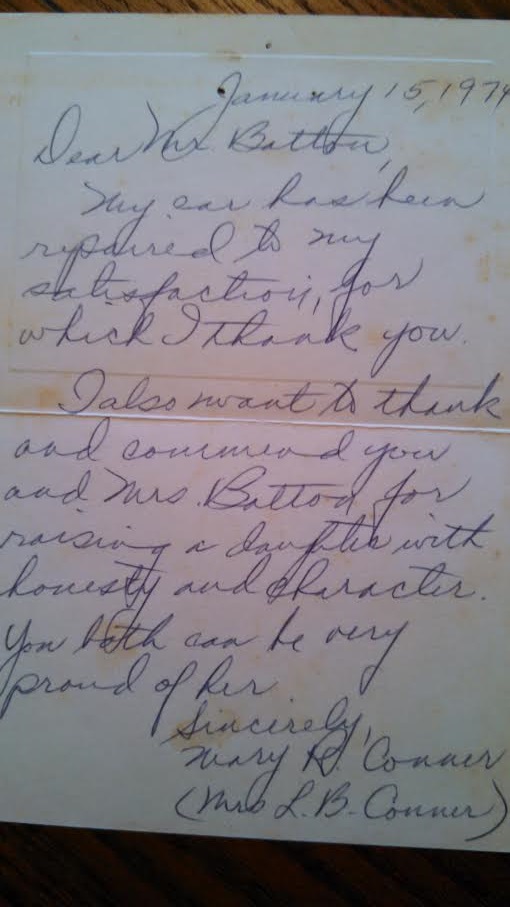 January 15, 1974
Dear Mr. Batton,
My car has been
repaired to my
satisfaction, for
which I thank you.
I also want to thank
and commend you
and Mrs. Batton for
raising a daughter with
honesty and character.
You both can be very
proud of her
Sincerely,
Mary R. Conner
(Mrs L. B. Conner)